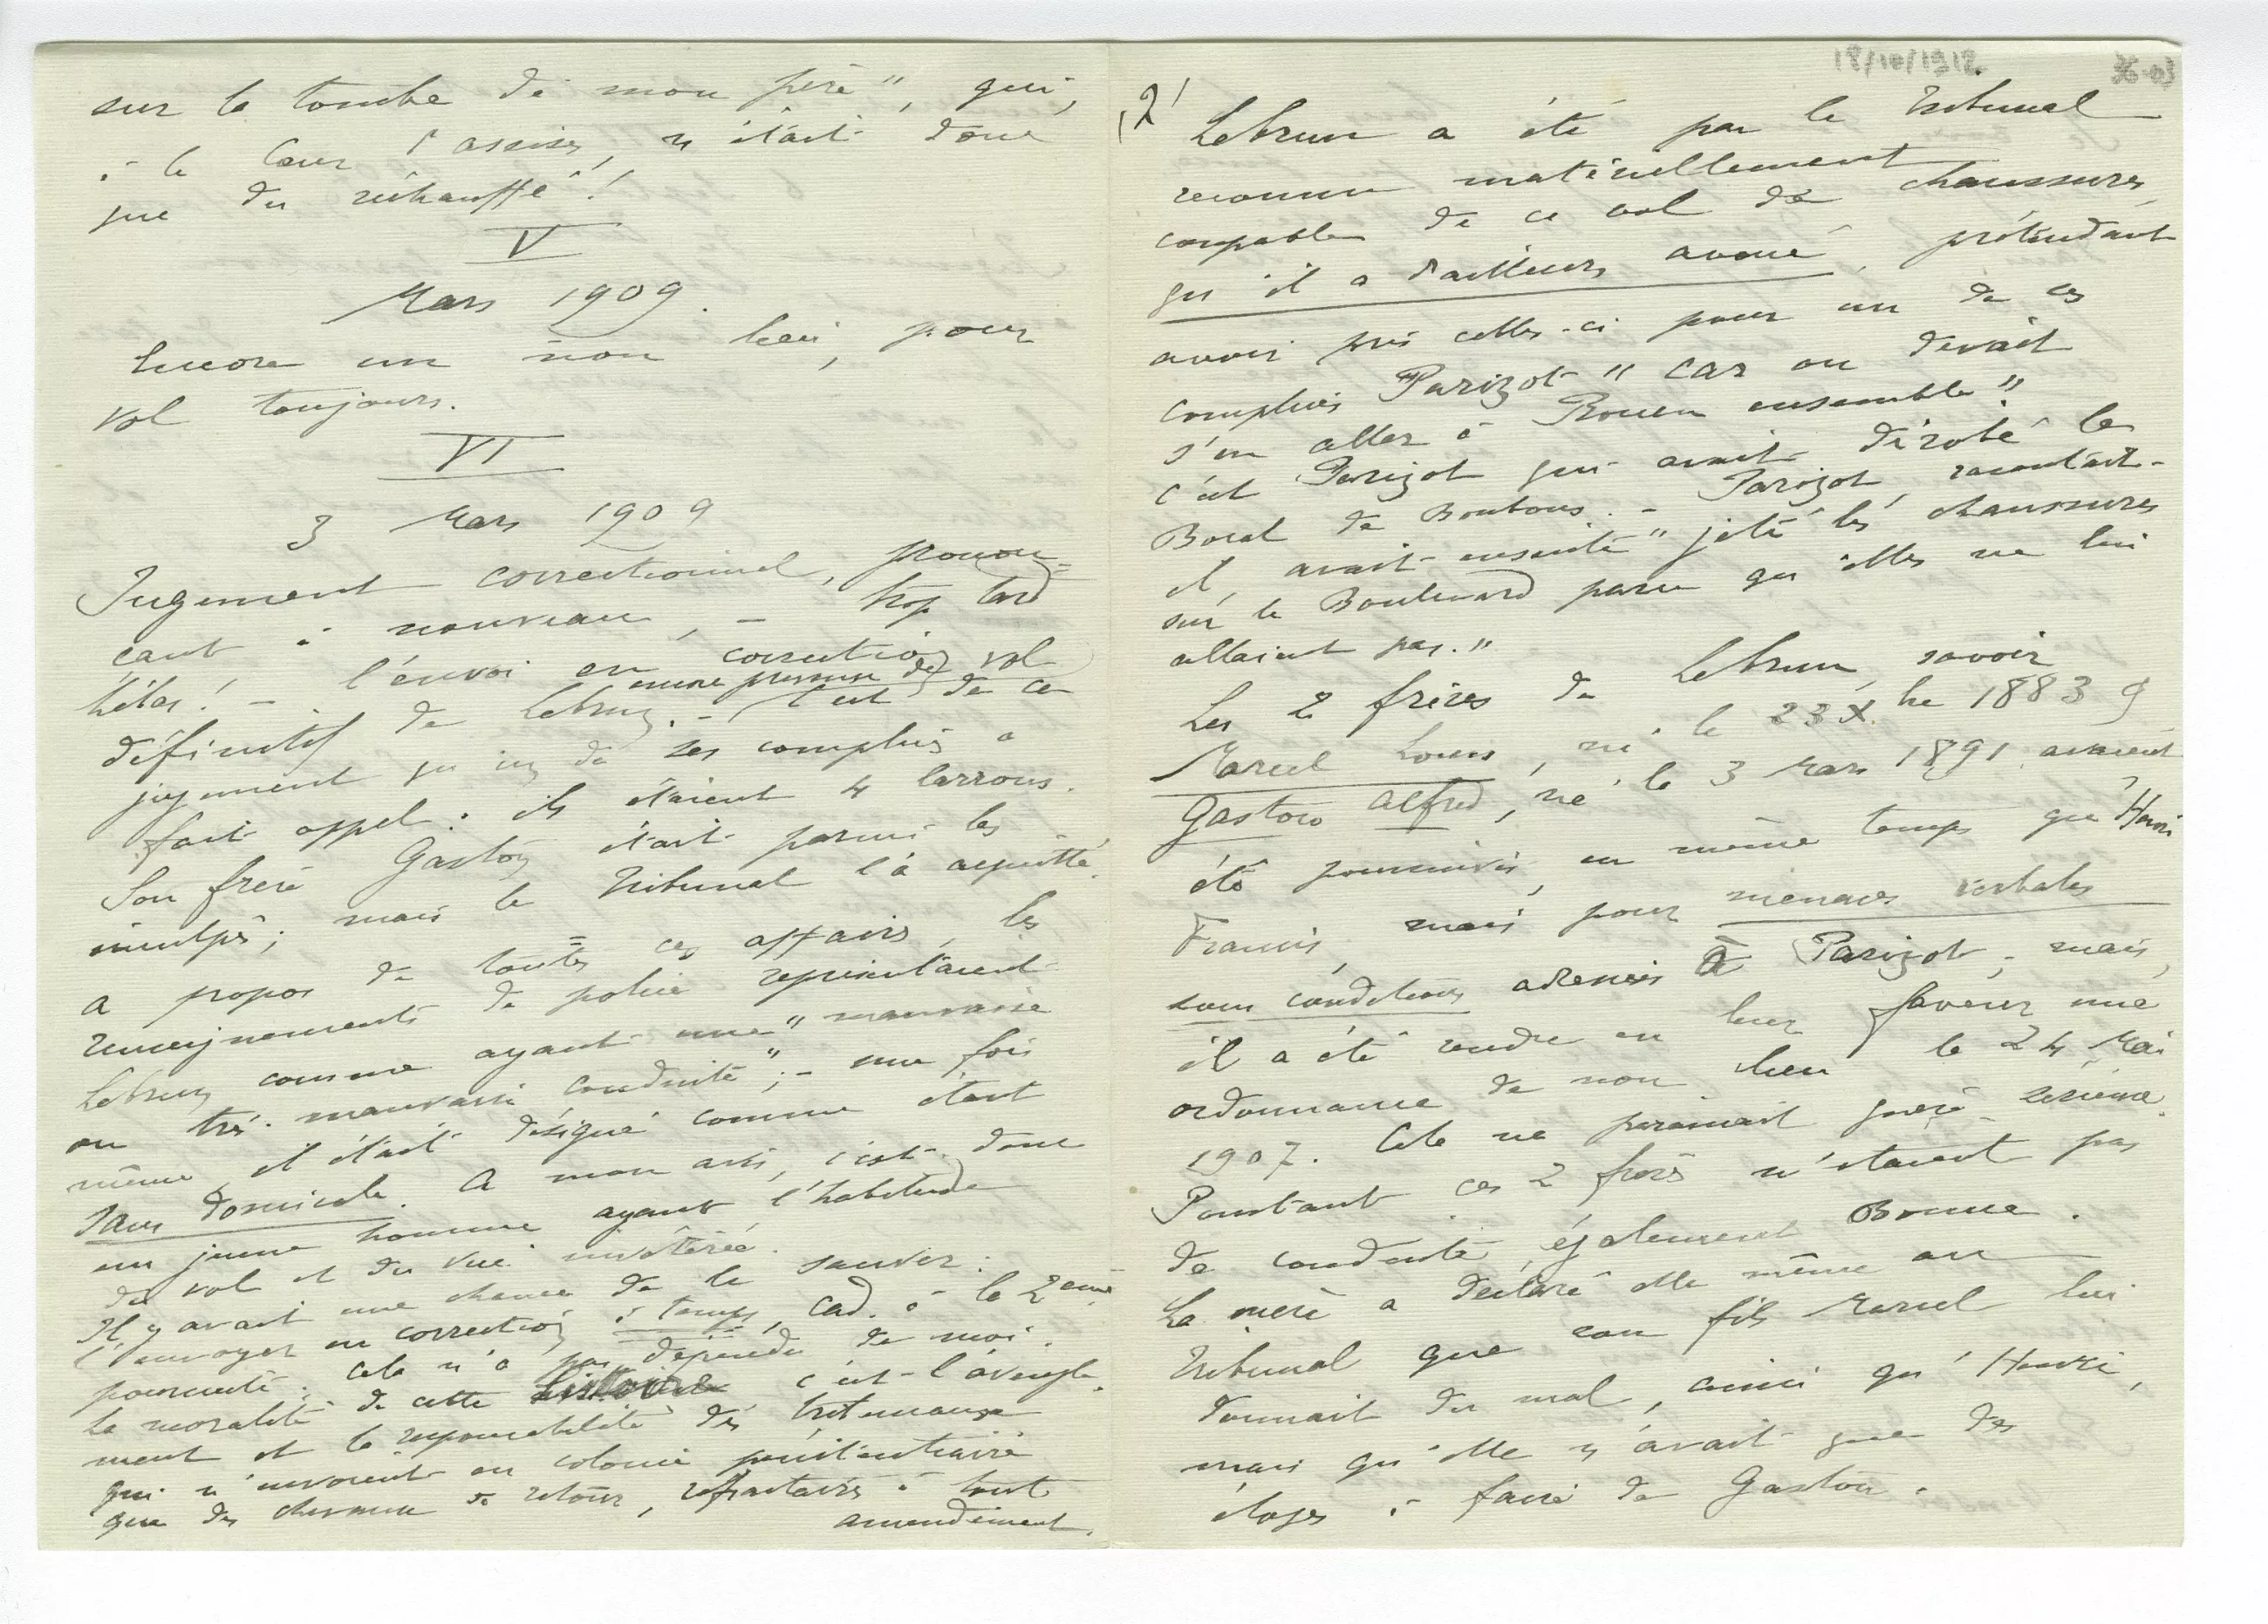 sur la tombe de mon père", qui,
à la Cour d'assises, n'était donc
que du réchauffé !
V
Mars 1909.
Encore un non lieu, pour
vol toujours.
VI
3 Mars 1909
Jugement correctionnel, pronon=
çant à nouveau, – trop tard
hélas ! – l'envoi en correction
définitif de Lebrun. – vol
C'est de ce
jugement qu'un de ses complices a
fait appel. ils étaient 4 larrons.
Son frère Gaston était parmi les
inculpés ; mais le Tribunal l'a acquitté.
A propos de toutes ces affaires, les
renseignements de police représentaient
Lebrun comme ayant une "mauvaise
ou très mauvaise conduite" ; – une fois
même, il était désigné comme étant
sans domicile. A mon avis, c'est donc
un jeune homme ayant l'habitude
du vol et du vice invétérée.
Il y avait une chance de le sauver :
l'envoyer en correction à temps, càd. à la 2ème
poursuite. Cela n'a pas dépendu de moi.
La moralité de cette histoire c'est l'aveugle-
ment et la responsabilité des tribunaux
qui n'envoient en colonie pénitentiaire
que des chevaux de retour, réfractaires à tout
amendement.
18/10/1912
36-03
2
Lebrun a été par le Tribunal
reconnu matériellement
coupable de ce vol de chaussures,
qu'il a d'ailleurs avoué, prétendant
avoir pris celles-ci pour un de ces
complices Parizot "car on devait
s'en aller à Rouen ensemble".
C'est Parizot qui avait dérobé le
Bocal de Bonbons. – Parizot, racontait-
il, avait ensuite "jeté les chaussures
sur le Boulevard parce qu'elles ne lui
allaient pas."
Les 2 frères de Lebrun, savoir
Marcel Louis, né le 23 X.bre 1883 &
Gaston Alfred, né le 3 Mars 1891 avaient
été poursuivis, en même temps que Henri
Francis, mais pour menaces verbales
sous conditions adressées à Parizot ; mais,
il a été rendu en leur faveur une
ordonnance de non lieu le 24 Mai
1907. Cela ne paraissait guère sérieux.
Pourtant ces 2 frères n'étaient pas
de conduite également Bonne.
La mère a déclaré elle même au
Tribunal que son fils Marcel lui
donnait du mal, ainsi qu'Henri,
mais qu'elle n'avait que des
éloges à faire de Gaston.